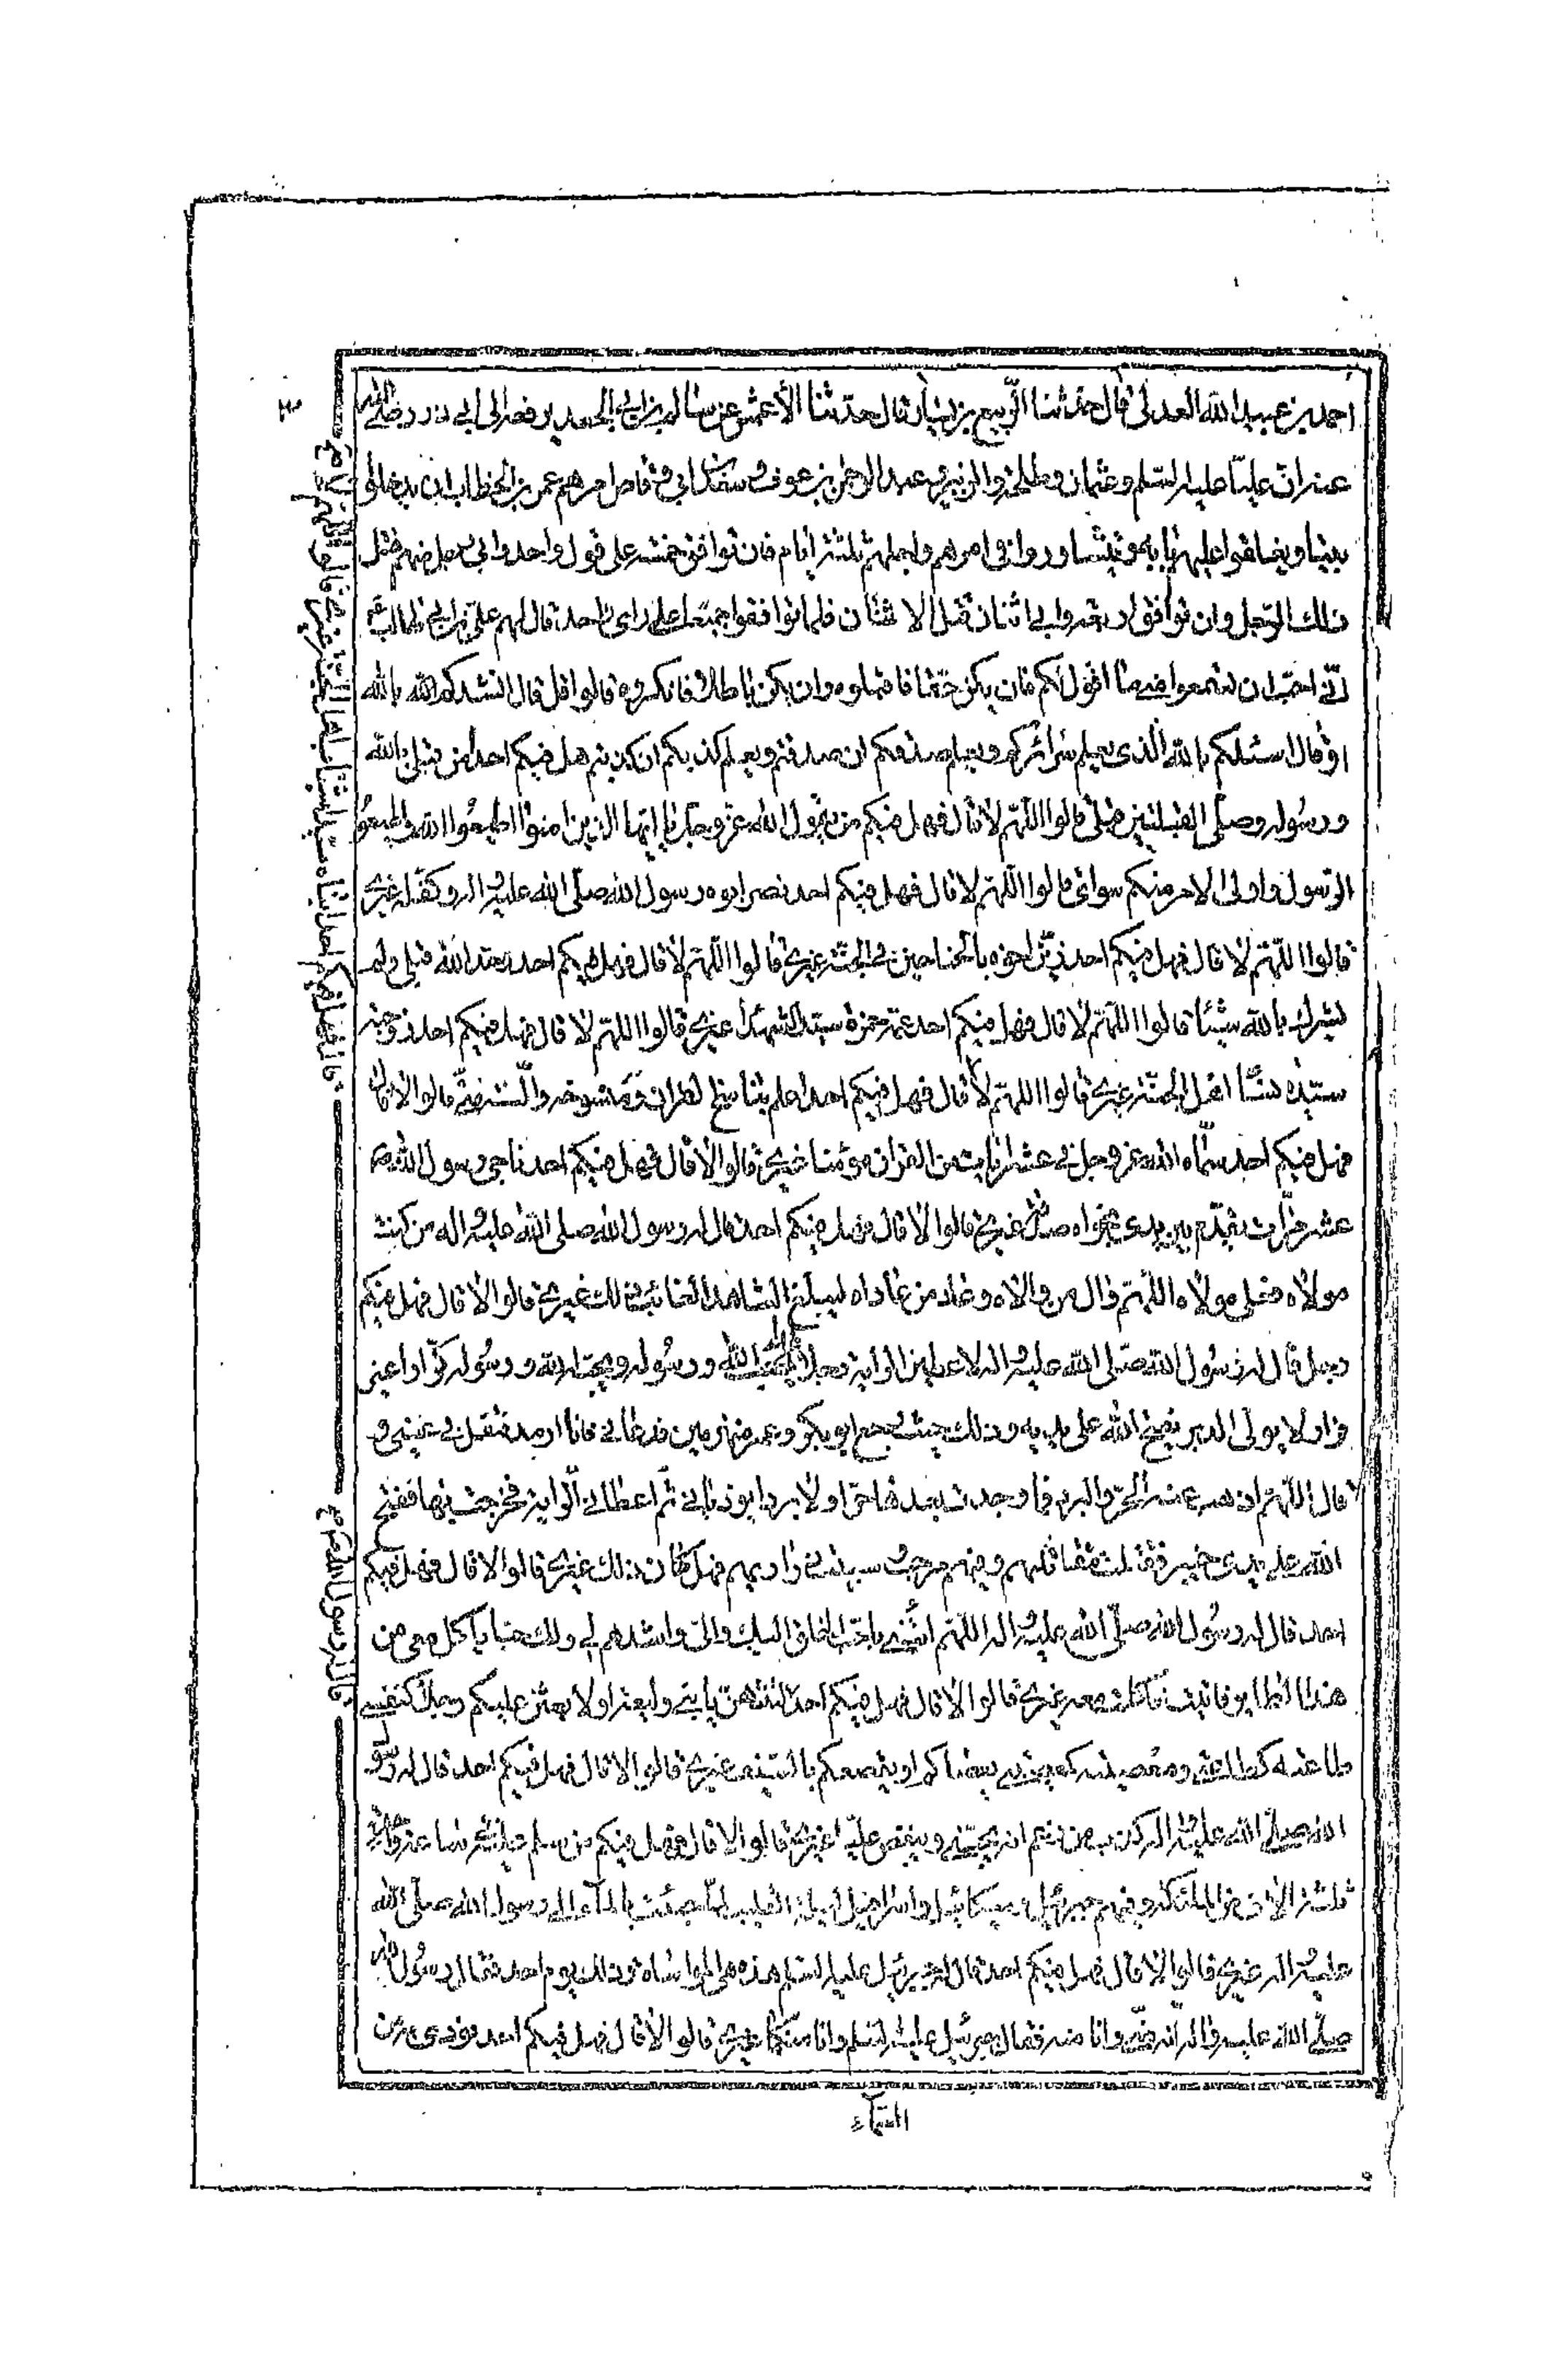 احمد بن عبيد الله العدلى قال حدثنا الربيع بن يسار قال حدثنا الأعمش عن سالم بن ابى الجعد يرفعه الى ابى ذر رضى الله
عنه ان عليا عليه السلم وعثمان وطلحة والزبير وعبد الرحمن بن عوف وسعد بن ابى وقاص امرهم عمر بن الخطاب ان يدخلوا
بيتا ويغلقوا عليهم بابه ويتشاوروا فى امرهم واجلهم ثلثة ايام فان توافق خمسة على قول واحد وابى رجل منهم قتل
ذلك الرجل وان توافق اربعة وابى اثنان قتل الاثنان فلما توافقوا جميعا على راى واحد قال لهم على بن ابى طالب ع
انى احب ان تسمعوا منى ما اقول لكم فان يكن حقا فاقبلوه وان يكن باطلا فانكروه قالوا قل قال انشدكم الله بالله
او قال اسئلكم بالله الذى يعلم سرائركم ويعلم صدقكم ان صدقتم ويعلم كذبكم ان كذبتم هل فيكم احد امن قبلى بالله
ورسوله وصلى القبلتين قبلى قالوا اللهم لا قال فهل فيكم من يقول الله عز وجل يا ايها الذين امنوا اطيعوا الله واطيعوا
الرسول واولى الامر منكم سواى قالوا اللهم لا قال فهل فيكم احد نصر ابوه رسول الله صلى الله عليه واله وكفله غيرى
قالوا اللهم لا قال فهل فيكم احد زين اخوه بالجناحين فى الجنة غيرى قالوا اللهم لا قال فهل فيكم احد وحد الله قبلى ولم
يشرك بالله شيئا قالوا اللهم لا قال فهل فيكم احد عمه حمزة سيد الشهداء غيرى قالوا اللهم لا قال فهل فيكم احد زوجته
سيدة نساء اهل الجنة غيرى قالوا اللهم لا قال فهل فيكم احد اعلم بناسخ القران ومنسوخه والسنة منى قالوا لا قال
فهل فيكم احد سماه الله عز وجل فى عشر ايات من القران مؤمنا غيرى قالوا لا قال فهل فيكم احد ناجى رسول الله ص
عشر مرات يقدم بين يدى نجواه صدقة غيرى قالوا لا قال فهل فيكم احد قال له رسول الله صلى الله عليه واله من كنت
مولاه فعلى مولاه اللهم وال من والاه وعاد من عاداه ليبلغ الشاهد الغائب ذلك غيرى قالوا لا قال فهل فيكم
رجل قال له رسول الله صلى الله عليه واله لاعطين الراية رجلا يحب الله ورسوله ويحبه الله ورسوله كرارا غير
فرار لا يولى الدبر يفتح الله على يديه وذلك حيث رجع ابو بكر وعمر منهزمين فدعانى وانا ارمد فتفل فى عينى و
قال اللهم اذهب عنه الحر والبرد فما وجدت بعدها حرا ولا بردا يوذيانى ثم اعطانى الراية فخرجت بها ففتح
الله على يدى خيبر فقتلت مقاتليهم وفيهم مرحب وسبيت ذراريهم فهل كان ذلك غيرى قالوا لا قال فهل فيكم
احد قال له رسول الله صلى الله عليه واله اللهم ائتنى باحب الخلق اليك والى واشدهم لى ولك حبا يأكل معى من
هذا الطاير فاتيت فاكلت معه غيرى قالوا لا قال فهل فيكم احد لتنتهن يا بنى وليعة او لابعثن عليكم رجلا كنفسى
طاعته كطاعتى ومعصيته كمعصيتى يغشاكم او يقصعكم بالسيف غيرى قالوا لا قال فهل فيكم احد قال له رسول
الله صلى الله عليه واله كذب من زعم انه يحبنى ويبغض عليا غيرى قالوا لا قال فهل فيكم من سلم عليه فى ساعة واحدة
ثلثة الاف من الملئكة وفيهم جبرئيل وميكائيل واسرافيل ليلة القليب لما جئت بالماء الى رسول الله صلى الله
عليه واله غيرى قالوا لا قال فهل فيكم احد قال له جبرئيل عليه السلم هذه هى المواساة وذلك يوم احد فقال رسول الله
صلى الله عليه واله انه منى وانا منه فقال جبرئيل عليه السلم وانا منكما غيرى قالوا لا قال فهل فيكم احد نودى من
السماء